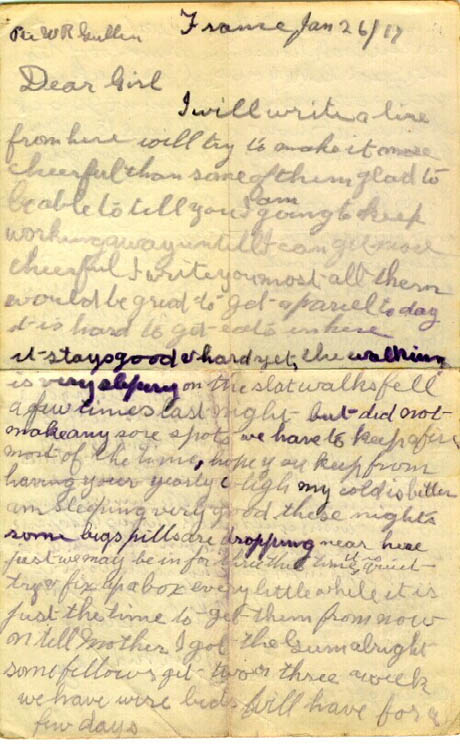 Pte W R Gullen
France Jan 26/17
Dear Girl
I will write a line
from here will try to make it more
cheerful than some of them glad to
be able to till you I am going to keep
working away untill I can get more
cheerful I write you most all them
would be grad to get a parcel to day
it is hard to get eats in here
it stays good & hard yet, the walking
is very slipury on the slat walks fell
a few times last night but did not
make any sore spots we have to keep a fire
most of the time, hope you keep from
having your yearly cough my cold is better
am sleeping very good these nights
some bigs pills are dropping near here
just we may be in for this time it is quiet
try & fix up a box every little while it is
just the time to get them from now
on tell Mother I got the Gum alright
some fellows get two or three a week
we have wire beds will have for a
few days